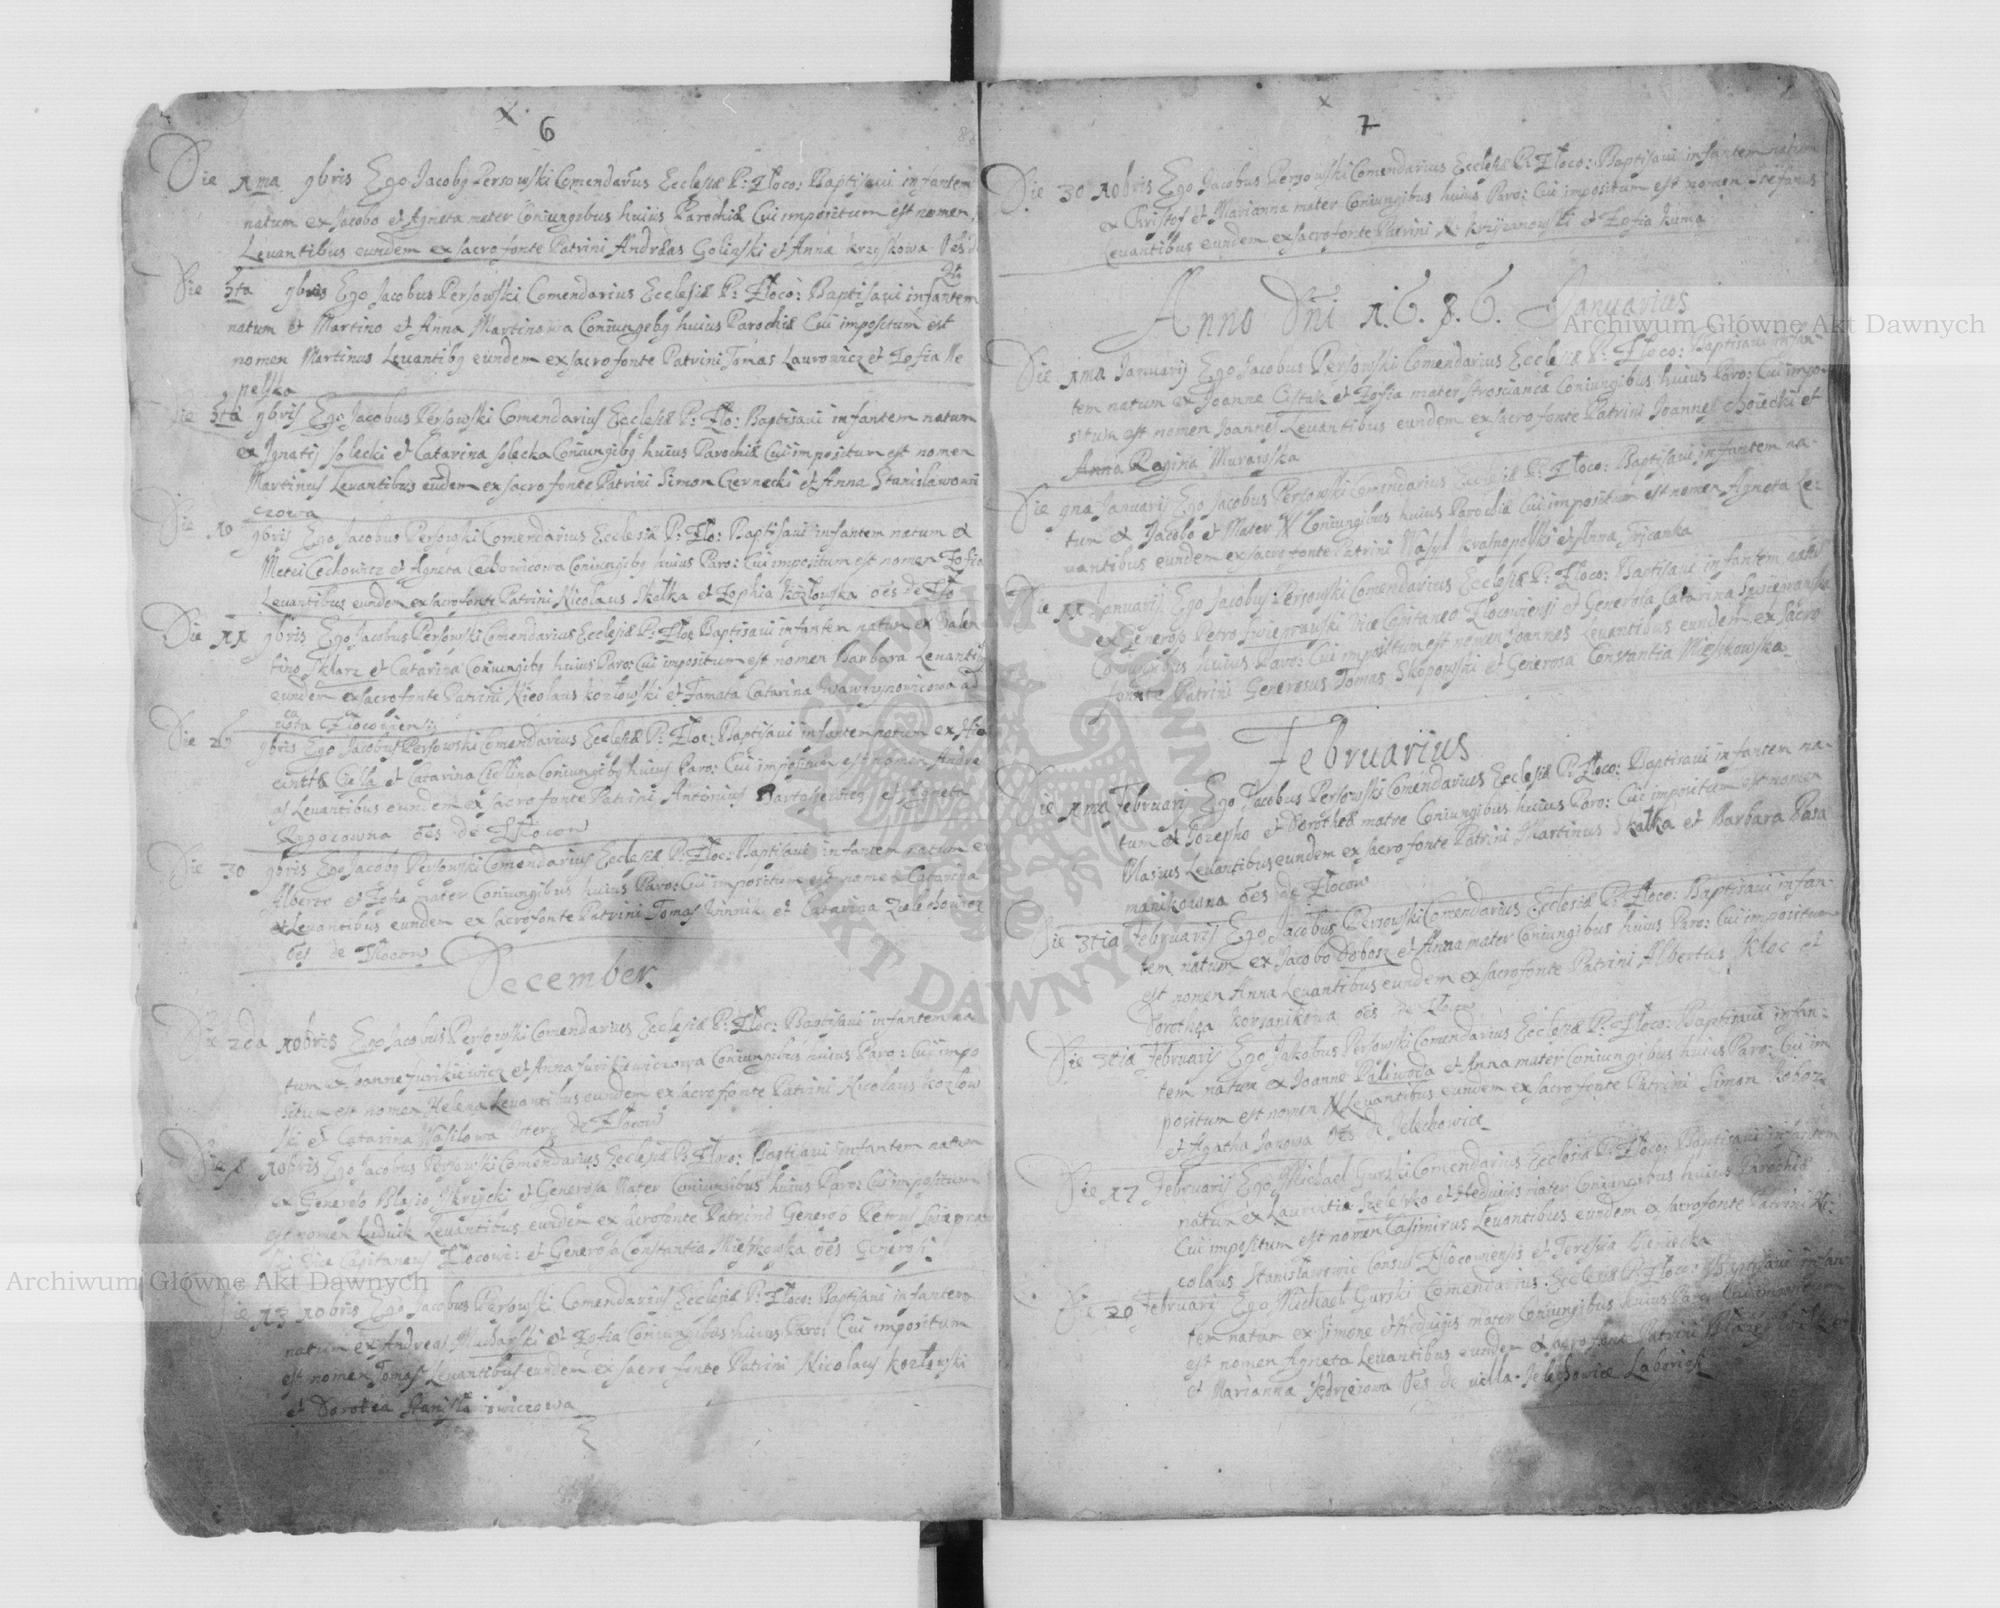 6
Die 1ma 9bris Ego Jacobg Persowski Comendarius Ecclesiæ P: Zloco: Baptisavi infantem
natum ex Jacobo et Agneta mater Coniungibus huius Parochiæ Cui impositum est nomen
Levantibus eundem ex sacro fonte Patrini Andreas Golinski et Anna Krzyskowa
Die 3ta 9bris Ego Jacobus Persowski Comendarius Ecclesiæ P: Zloco: Baptisavi infantem
natum et Martino et Anna Martinowa Coniungebg huius Parochiæ Cui impositum est
nomen Martinus Levantibg eundem ex sacro fonte Patrini Tomas Laurowicz et Zofia Ne
pelska
Die 3ta 9bris Ego Jacobus Persowski Comendarius Ecclesiæ P: Zlo: Baptisavi infantem natum
ex Ignatij Solecki et Catarina Solecka Coniungibg huius Parochiæ Cui impositum est nomen
Martinus Levantibus eundem ex sacro fonte Patrini Simon Czernecki et Anna Stanislawowi
czowa
Die 10 9bris Ego Jacobus Persowski Comendarius Ecclesiæ P: Zlo: Baptisavi infantem natum et
Metei Cechowicz et Agneta Cechowicowa Coniungibg huius Paro: Cui impositum est nomen Zofia
Levantibus eundem ex sacro fonte Patrini Nicolaus Skalka et Zophia Kozlowska oes de Zlo
Die 11 9bris Ego Jacobus Persowski Comendarius Ecclesiæ P: Zloc Baptisavi infantem natum ex Valen
tino Sklarz et Catarina Coniungibg huius Paro: Cui impositum est nomen Barbara Levantib
eundem ex sacro fonte Patrini Nicolaus Kozlowski et Famata Catarina Wawrzynowicowa ad
Die 9bris Ego Jacobus Persowski Comendarius Ecclesiæ P: Zloc: Baptisavi infantem natum ex Hia
cinttæ Ciella et Catarina Cicllina Coniungibg huius Paro: Cui impositum est nomen Andre
as Levantibus eundem ex sacro fonte Patrini Antonius Bartosiewicz et Agneta
Rygocowna oes de Zlocow
Die 30 9bris Ego Jacobg Persowski Comendarius Ecclesiæ P: Zloc: Baptisavi infantem natum ex
Alberto et Zofia mater Coniungibus huius Paro: Cui impositum est nomen Catarina
et Levantibus eundem ex sacro fonte Patrini Tomas Winnik et Catarina Zielechowicz
oes de Zlocow
December.
Die 2da 10bris Ego Jacobus Persowski Comendarius Ecclesiæ P: Zloc: Baptisavi infantem na
tum ex Joanne Jurikiewicz et Anna Jurikiewiczowa Coniungibus huius Paro: Cui impo
situm est nomen Helena Levantibus eundem ex sacro fonte Patrini Nicolaus Kozlow
ski et Catarina Wasilowa de Zlocow
Die 8 10bris Ego Jacobus Persowski Comendarius Ecclesiæ P: Zloco: Baptisavi infantem natum
ex Generoso Blasio Skrzycki et Generosa Mater Coniungibus huius Paro: Cui impositum
est nomen Ludwik Levantibus eundem ex sacro fonte Patrini Generoso Petrus Swiepraw
ski Vice Capitaneus Zlocowi: et Generosa Constantia Mieskowska oes Generosi
Die 13 10bris Ego Jacobus Persowski Comendarius Ecclesiæ P: Zloco: Baptisavi infantem
natum ex Andreas Mucharski et Zofia Coniungibus huius Paro: Cui impositum
est nomen Tomas Levantibus eundem ex sacro fonte Patrini Nicolaus Kozlowski
et Dorotea Stanislawiczowa
7
Die 30 10bris Ego Jacobus Persowski Comendarius Ecclesiæ P: Zloco: Baptisavi infantem natum
ex Kristof et Marianna mater Coniungibus huius Paro: Cui impositum est nomen Stefanus
Levantibus eundem ex sacro fonte Patrini X: Krzyzanowski et Zofia Kuma
Anno Dni 1.6.8.6. Januarius
Die 1ma Januarij Ego Jacobus Persowski Comendarius Ecclesiæ P: Zloco: Baptisavi infan-
tem natum ex Joanne Cistar et Zofia mater Coniungibus huius Paro: Cui impo-
situm est nomen Joannes Levantibus eundem ex sacro fonte Patrini Joannes Choiecki et
Anna Regina Murawska
Die 9na Januarij Ego Jacobus Persowski Comendarius Ecclesiæ P: Zloco: Baptisavi infantem na-
tum et Jacobo et Mater N Coniungibus huius Parochiæ Cui impositum est nomen Agneta Le-
vantibus eundem ex sacro fonte Patrini Wasyl Krasnopolski et Anna Tryczanka
Die 11 Januarij Ego Jacobus Persowski Comendarius Ecclesiæ P: Zloco: Baptisavi infantem natum
ex Generoso Petro Swieprawski Vice Capitaneo Zlocowiensi et Generosa Catarina Swieprawska
Coniungibus huius Paro: Cui impositum est nomen Joannes Levantibus eundem ex sacro
fonte Patrini Generosus Tomas Skopowski et Generosa Constantia Mieskowska
Februarius
Die 1ma Februarij Ego Jacobus Persowski Comendarius Ecclesiæ P: Zloco: Baptisavi infantem na-
tum et Jozepho et Dorotheæ matre Coniungibus huius Paro: Cui impositum est nomen
Blasius Levantibus eundem ex sacro fonte Patrini Martinus Skalka et Barbara Rasa
manikowna oes de Zlocow
Die 3tia Februarij Ego Jacobus Persowski Comendarius Ecclesiæ P: Zloco: Baptisavi infan-
tem natum ex Jacobo Dobosz et Anna mater Coniungibus huius Paro: Cui impositum
est nomen Anna Levantibus eundem ex sacro fonte Patrini Albertus Kloc et
Dorothea Korsanikowa oes de Zloco
Die 3tia Februarij Ego Jakobus Persowski Comendarius Ecclesiæ P: Zloco: Baptisavi infan-
tem natum ex Joanne Paliwoda et Anna mater Coniungibus huius Paro: Cui im
positum est nomen N Levantibus eundem ex sacro fonte Patrini Simon Koboz
et Agatha Janowa oes de Jelechowice
Die 17 Februarij Ego Michael Gurski Comendarius Ecclesiæ P: Zloco: Baptisavi infantem
natum ex Laurintio Szelesko et Hedvigis mater Coniungibus huius Parochiæ
Cui impositum est nomen Casimirus Levantibus eundem ex sacro fonte Patrini Ni-
colaus Stanislawowic Consul Zlocowiensis et Teresia
Die 20 Februarij Ego Michael Gurski Comendarius Ecclesiæ P: Zloco: Baptisavi infan-
tem natum ex Simone et Hedvigis mater Coniungibus huius Paro: Cui impositum
est nomen Agneta Levantibus eundem ex sacro fonte Patrini
et Marianna Jedrzeiowa oes de villa Jelechowiæ Laboriosi
Archiwum Główne Akt Dawnych
Archiwum Główne Akt Dawnych
ARCHIWUM GŁÓWNE AKT DAWNYCH